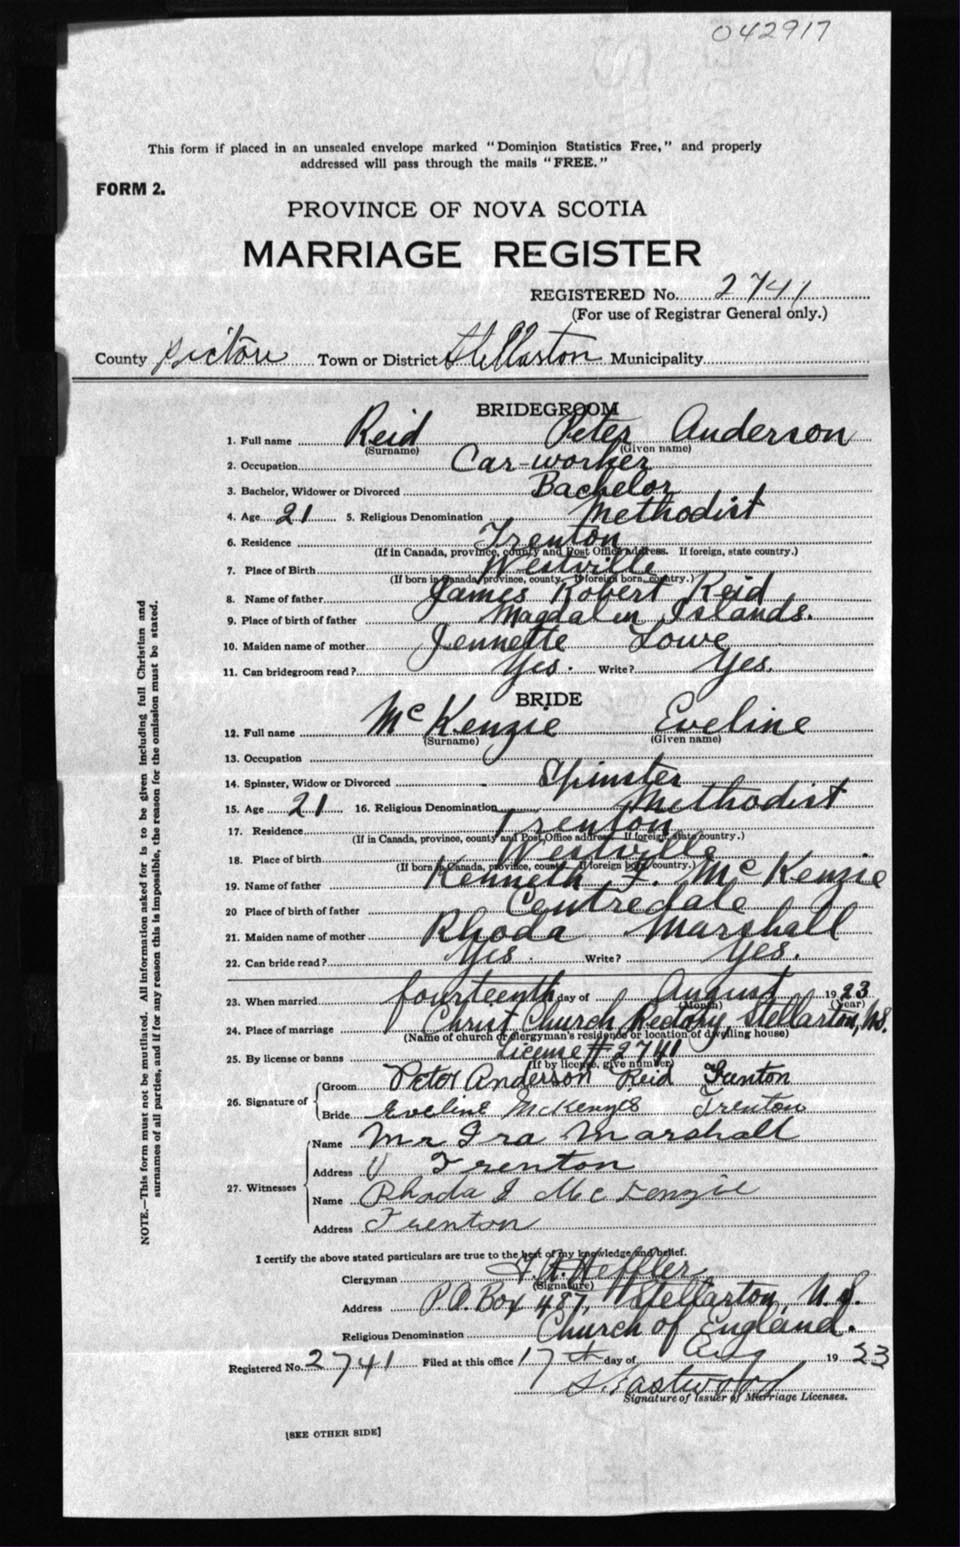 042917
This form if placed in an unsealed envelope marked "Dominion Statistics Free," and properly
addressed will pass through the mails "FREE."
FORM 2.
PROVINCE OF NOVA SCOTIA
MARRIAGE REGISTER
REGISTERED No. 2741
(For use of Registrar General only.)
County Pictou Town or District Stellarton Municipality
BRIDEGROOM
1. Full name Reid Peter Anderson
(Surname) (Given name)
2. Occupation Car-worker
3. Bachelor, Widower or Divorced Bachelor
4. Age 21 5. Religious Denomination Methodist
6. Residence Trenton
(If in Canada, province, county and Post Office address. If foreign, state country.)
7. Place of Birth Westville
(If born in Canada, province, county. If foreign born, country.)
8. Name of father James Robert Reid
9. Place of birth of father Magdalen Islands.
10. Maiden name of mother Jennette Lowe
11. Can bridegroom read? Yes. Write? Yes.
BRIDE
12. Full name McKenzie Eveline
(Surname) (Given name)
13. Occupation
14. Spinster, Widow or Divorced Spinster
15. Age 21 16. Religious Denomination Methodist
17. Residence Trenton
(If in Canada, province, county and Post Office address. If foreign, state country.)
18. Place of birth Westville
(If born in Canada, province, county. If foreign born, country.)
19. Name of father Kenneth F. McKenzie
20 Place of birth of father Centredale
21. Maiden name of mother Rhoda Marshall
22. Can bride read? Yes. Write? Yes.
23. When married fourteenth day of August 1923
(Month) (Year)
24. Place of marriage Christ Church Rectory, Stellarton, N.S.
(Name of church or clergyman's residence or location of dwelling house)
25. By license or banns License # 2741
(If by license, give number)
26. Signature of Groom Peter Anderson Reid Trenton
Bride Eveline McKenzie Trenton
27. Witnesses
Name Mr Ira Marshall
Address Trenton
Name Rhoda J McKenzie
Address Trenton
I certify the above stated particulars are true to the best of my knowledge and belief.
Clergyman Heffler
(Signature)
Address P.O. Box 487, Stellarton, N.S.
Religious Denomination Church of England.
Registered No. 2741 Filed at this office 17th day of Aug 1923
S. Eastwood
Signature of Issuer of Marriage Licenses.
[SEE OTHER SIDE]
NOTE.—This form must not be mutilated. All information asked for is to be given including full Christian and
surnames of all parties, and if for any reason this is impossible, the reason for the omission must be stated.